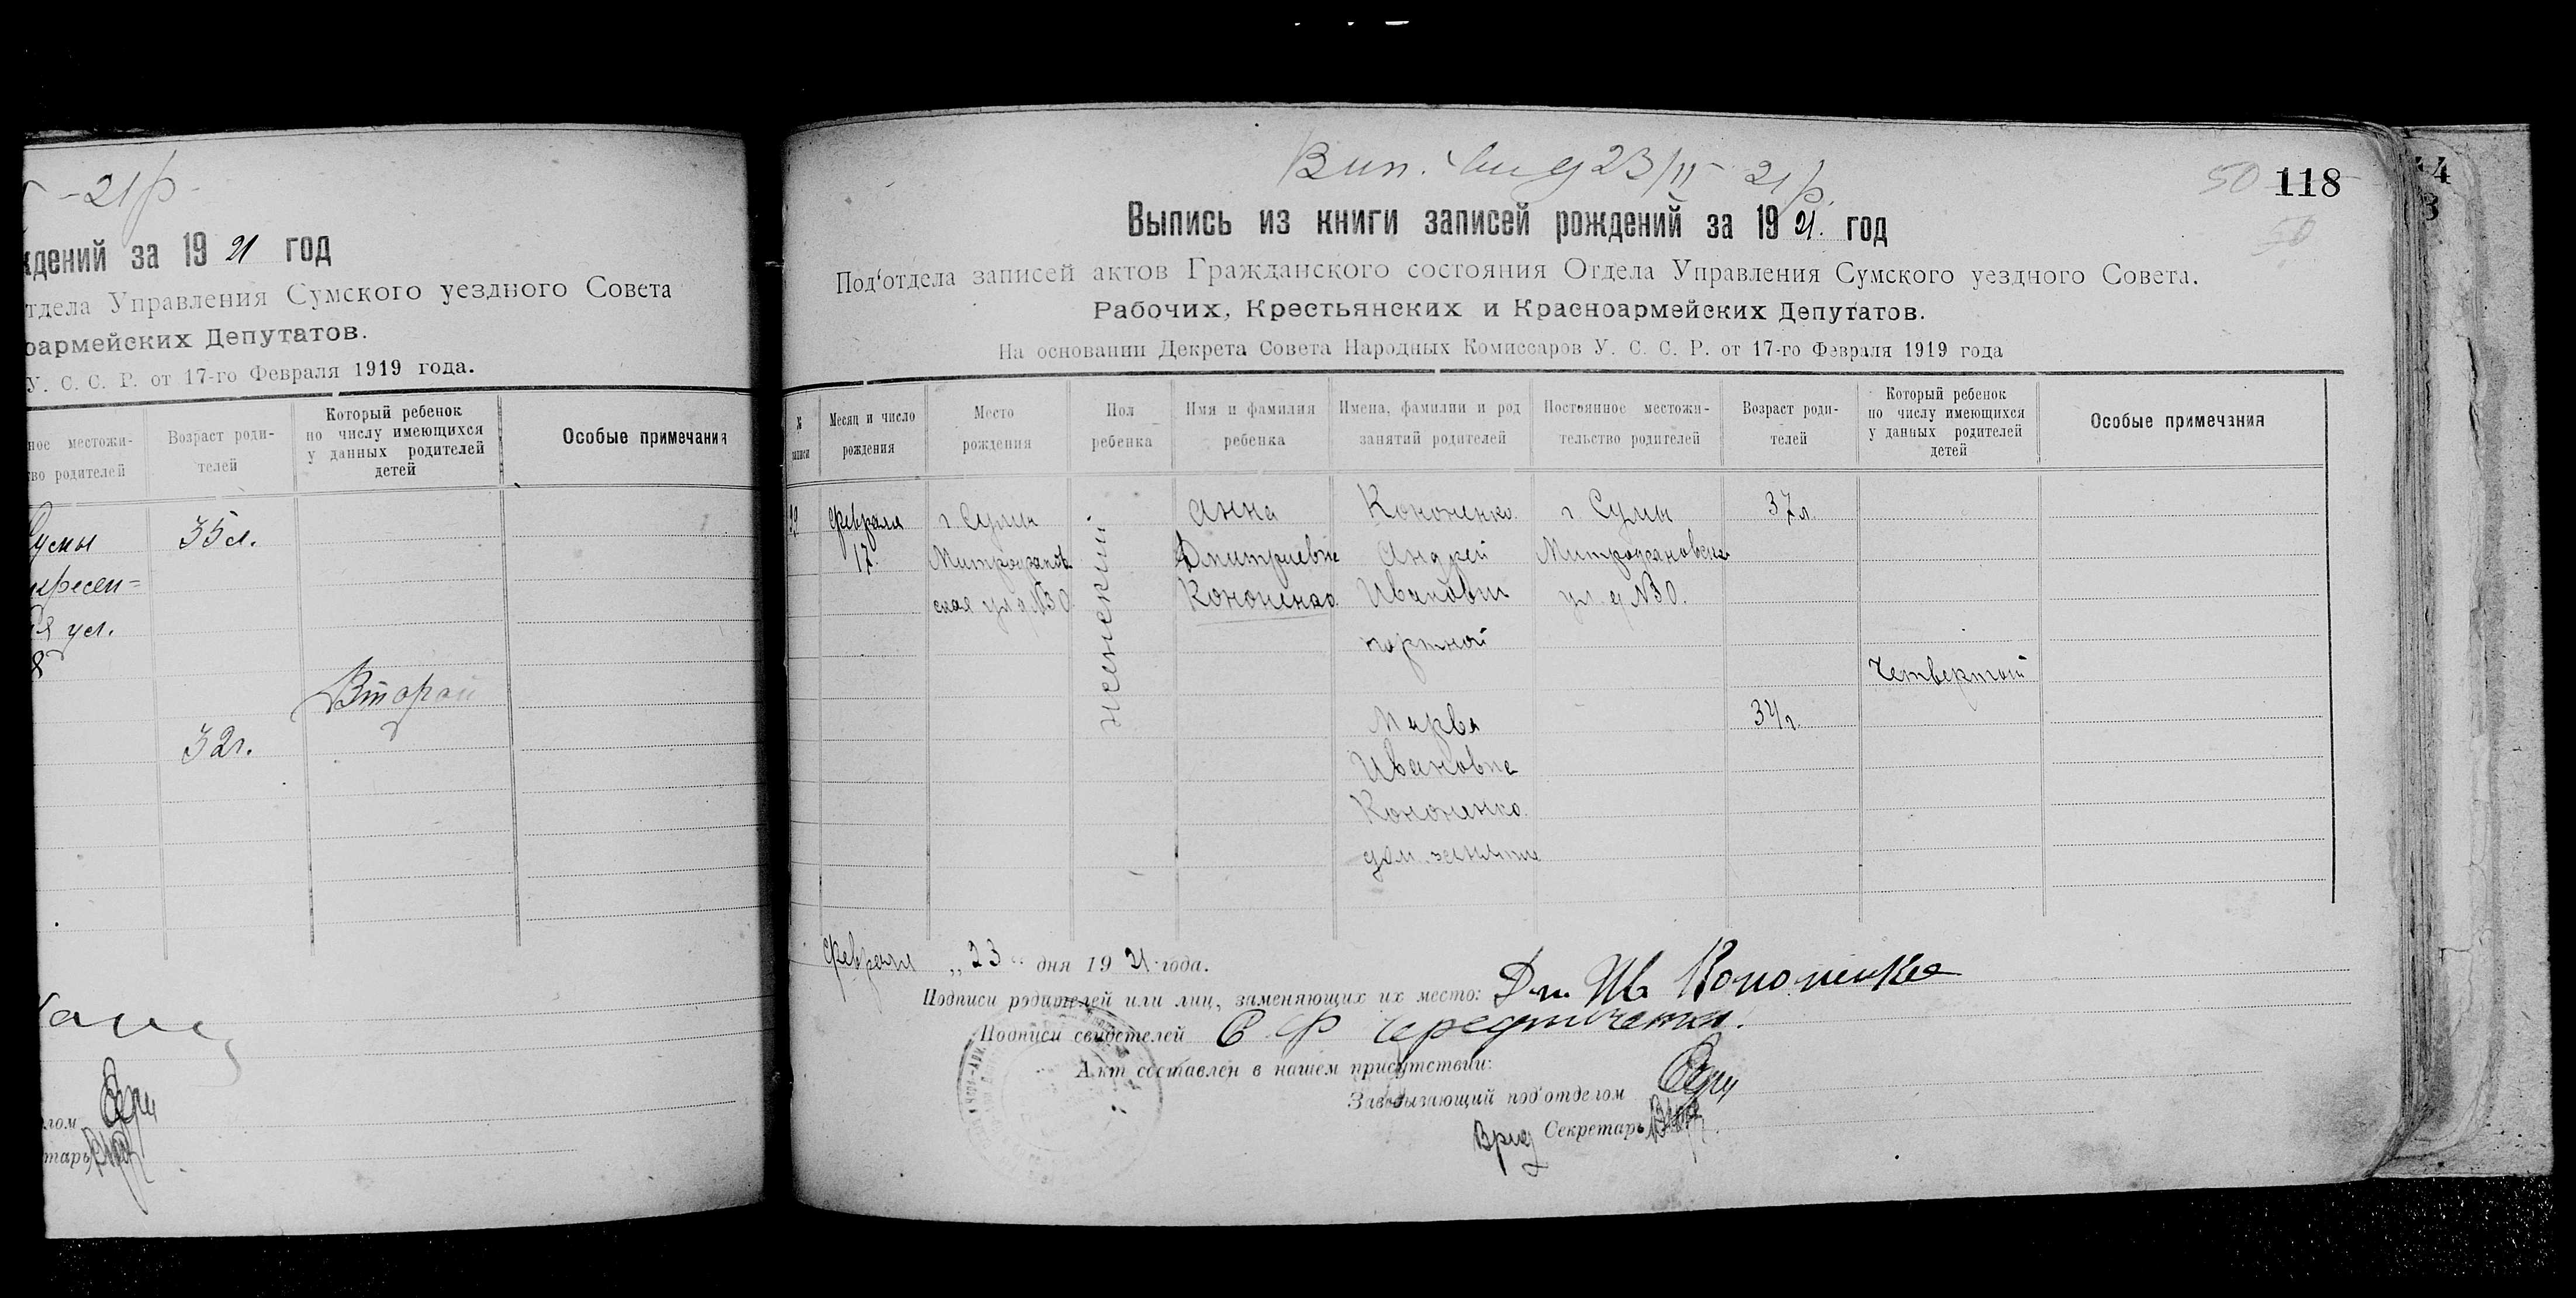 -21р
ждений за 1921 год
тдела Управления Сумского уездного Совета
оармейских Депутатов.
У. С. С. Р. от 17-го Февраля 1919 года.
ное местожи-
во родителей
Возраст роди-
телей
Который ребенок
по числу имеющихся
у данных родителей
детей
Особые примечания
35 л.
кресен=
ул.
8
Второй
32 г.
лом
тарь
Вип. 23/II 21 р.
50 118
50
Выпись из книги записей рождений за 1921. год
Под'отдела записей актов Гражданского состояния Отдела Управления Сумского уездного Совета.
Рабочих, Крестьянских и Красноармейских Депутатов.
На основании Декрета Совета Народных Комиссаров У. С. С. Р. от 17-го Февраля 1919 года
№
записи
Месяц и число
рождения
Место
рождения
Пол
ребенка
Имя и фамилия
ребенка
Имена, фамилии и род
занятий родителей
Постоянное местожи-
тельство родителей
Возраст роди-
телей
Который ребенок
по числу имеющихся
у данных родителей
детей
Особые примечания
февраля
17.
г. Сумы
Митрофанов
ская ул д №30
женский
Анна
Дмитриевна
Кононенко
Кононенко
Андрей
Иванович
портной
Марва
Ивановна
Кононенко
дом. занятие
г Сумы
Митрофановская
ул. д №30.
37 л.
34 г.
Четвертый
Февраля „23" дня 1921 года.
Подписи родителей или лиц, заменяющих их место: Дм. Ив Кононенко
Подписи свидетелей С Ф Чередниченко.
Акт составлен в нашем присутствии:
Заведывающий под'отделом
Врид Секретарь